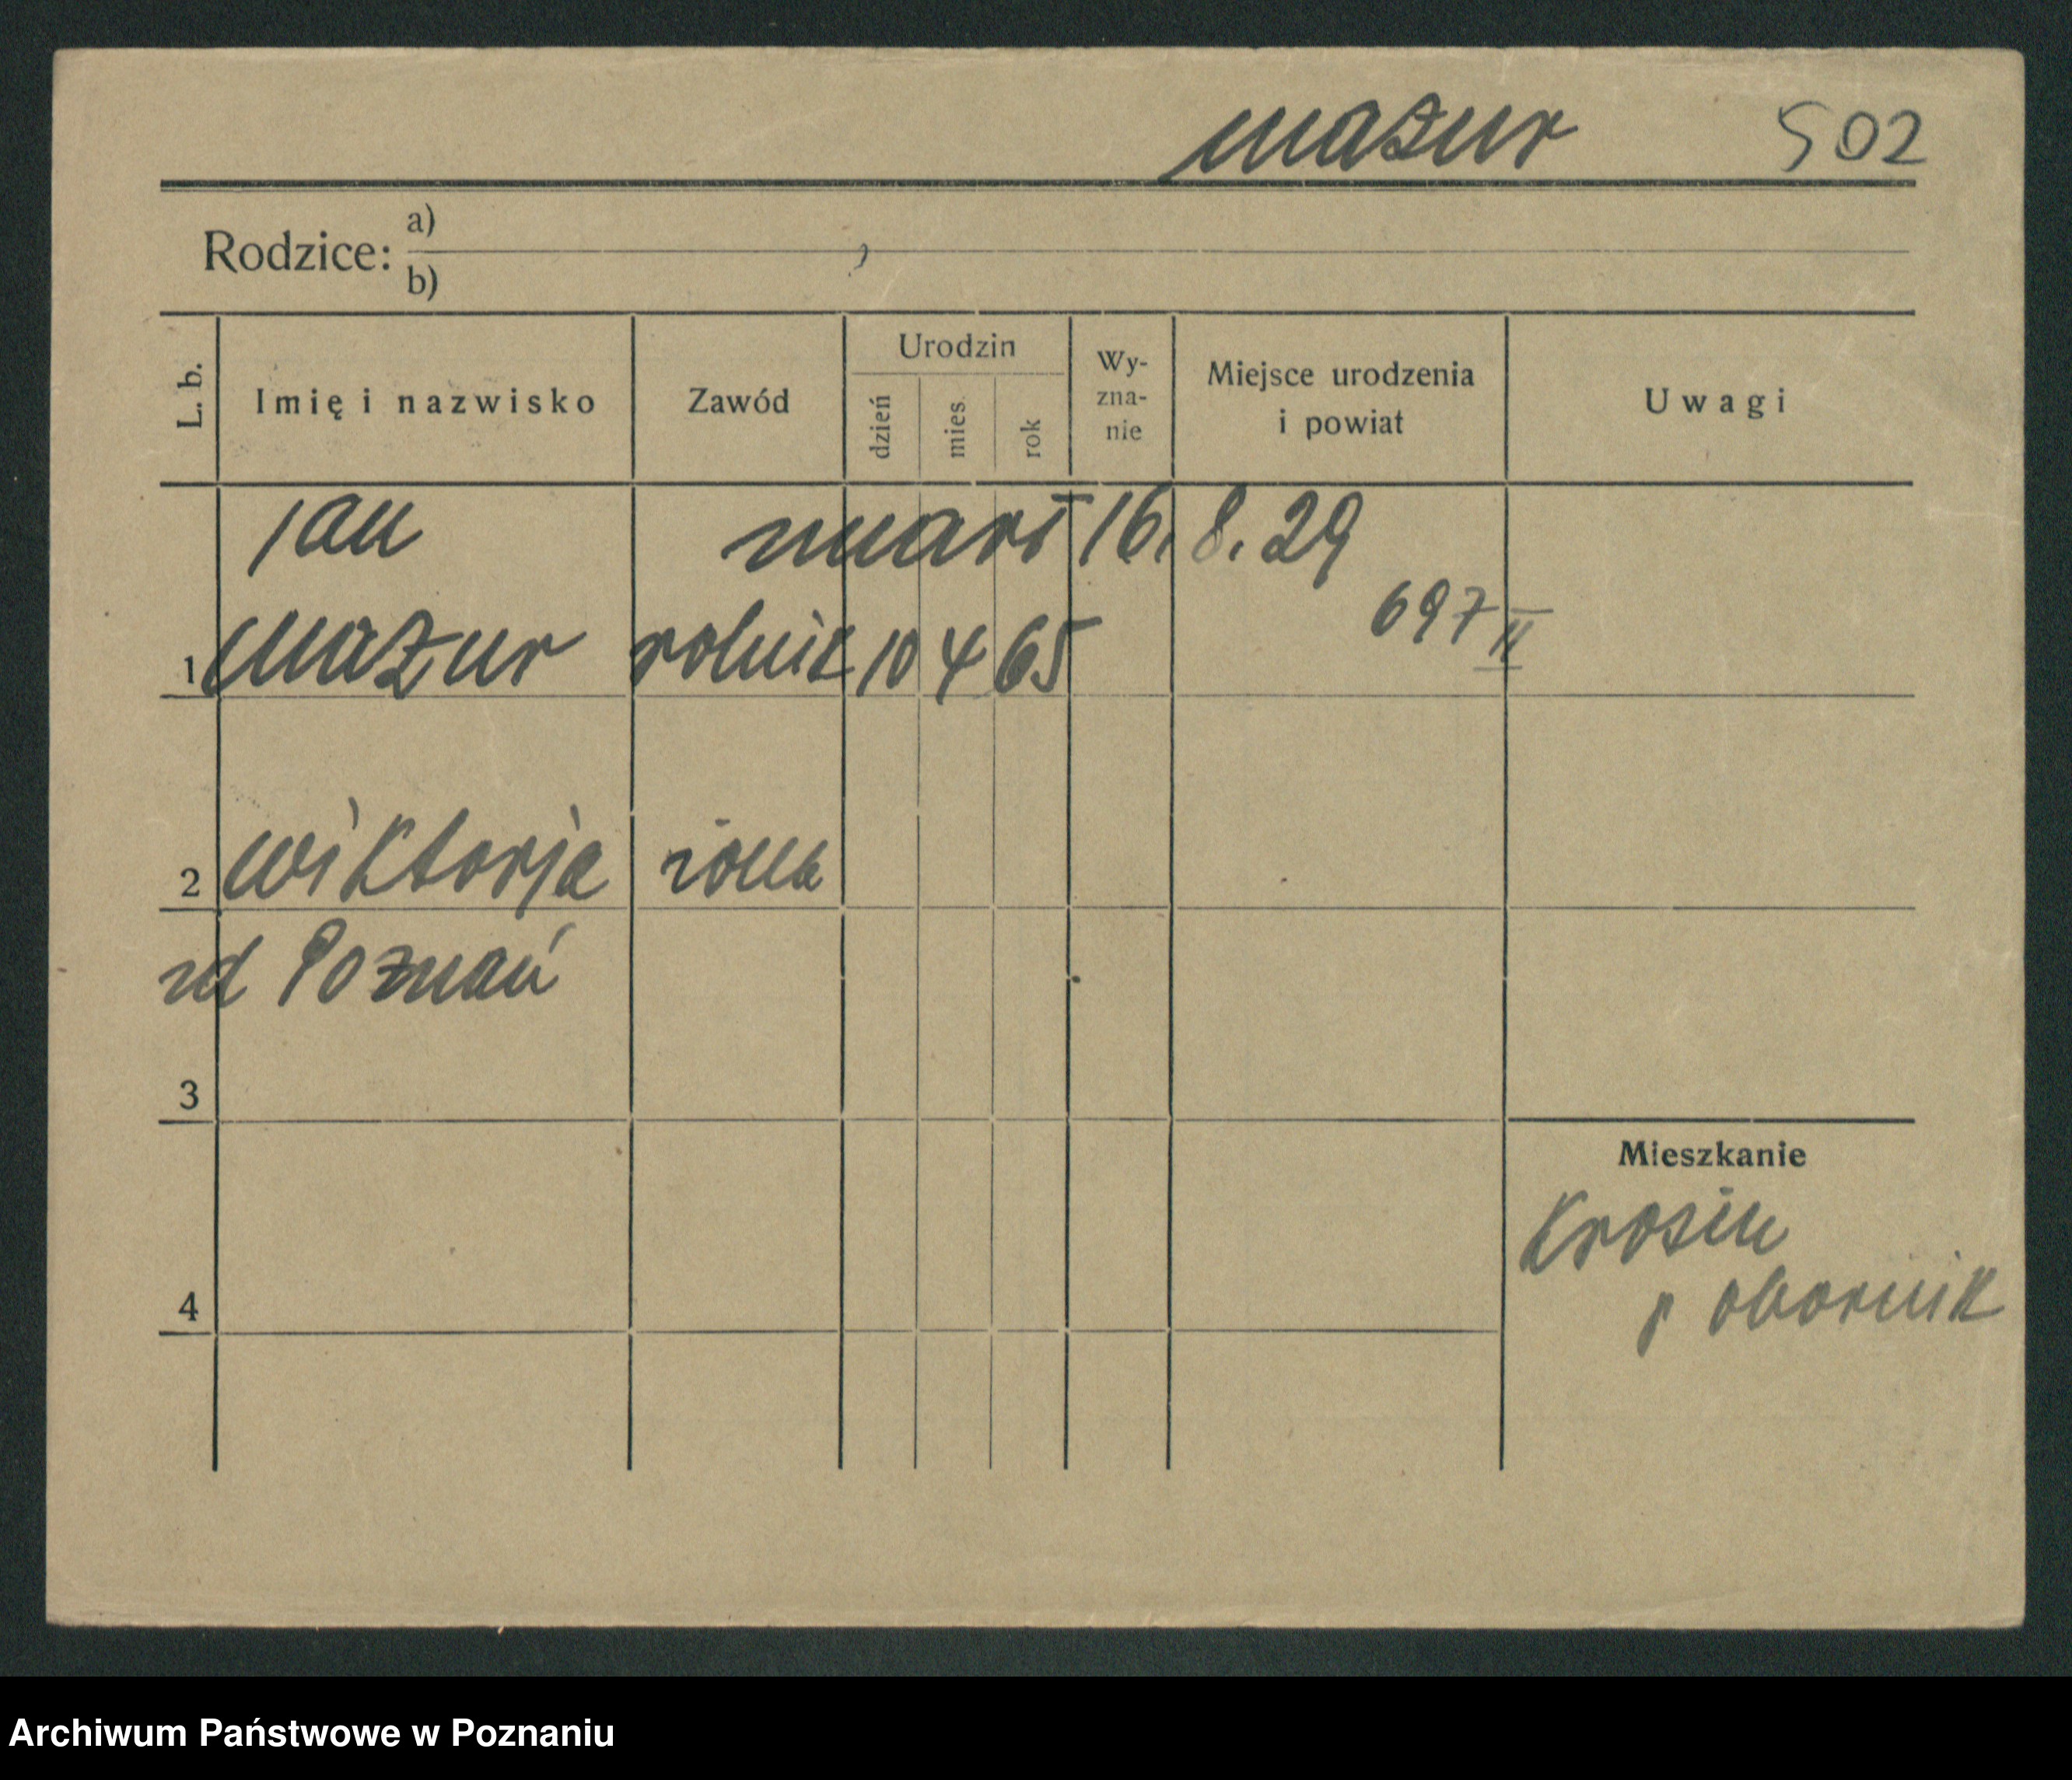 Mazur 502
Rodzice: a)
b)
L. b. Imię i nazwisko Zawód Urodzin dzień mies. rok Wy-zna-nie Miejsce urodzenia i powiat Uwagi
Jan zmarł 16. 8. 29
697 II
1 Mazur rolnik 10 4 65
2 Wiktorja żona
zd Poznań
3
Mieszkanie
Krosin
p obornik
4
Archiwum Państwowe w Poznaniu